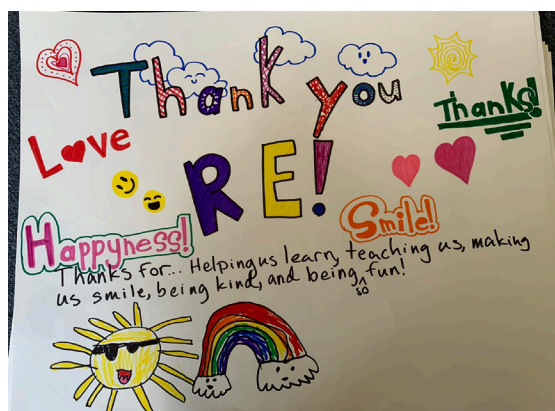 Thank you
Thanks!
Love
RE!
Happyness!
Smile!
Thanks for... Helping us learn, teaching us, making
us smile, being kind, and being so fun!